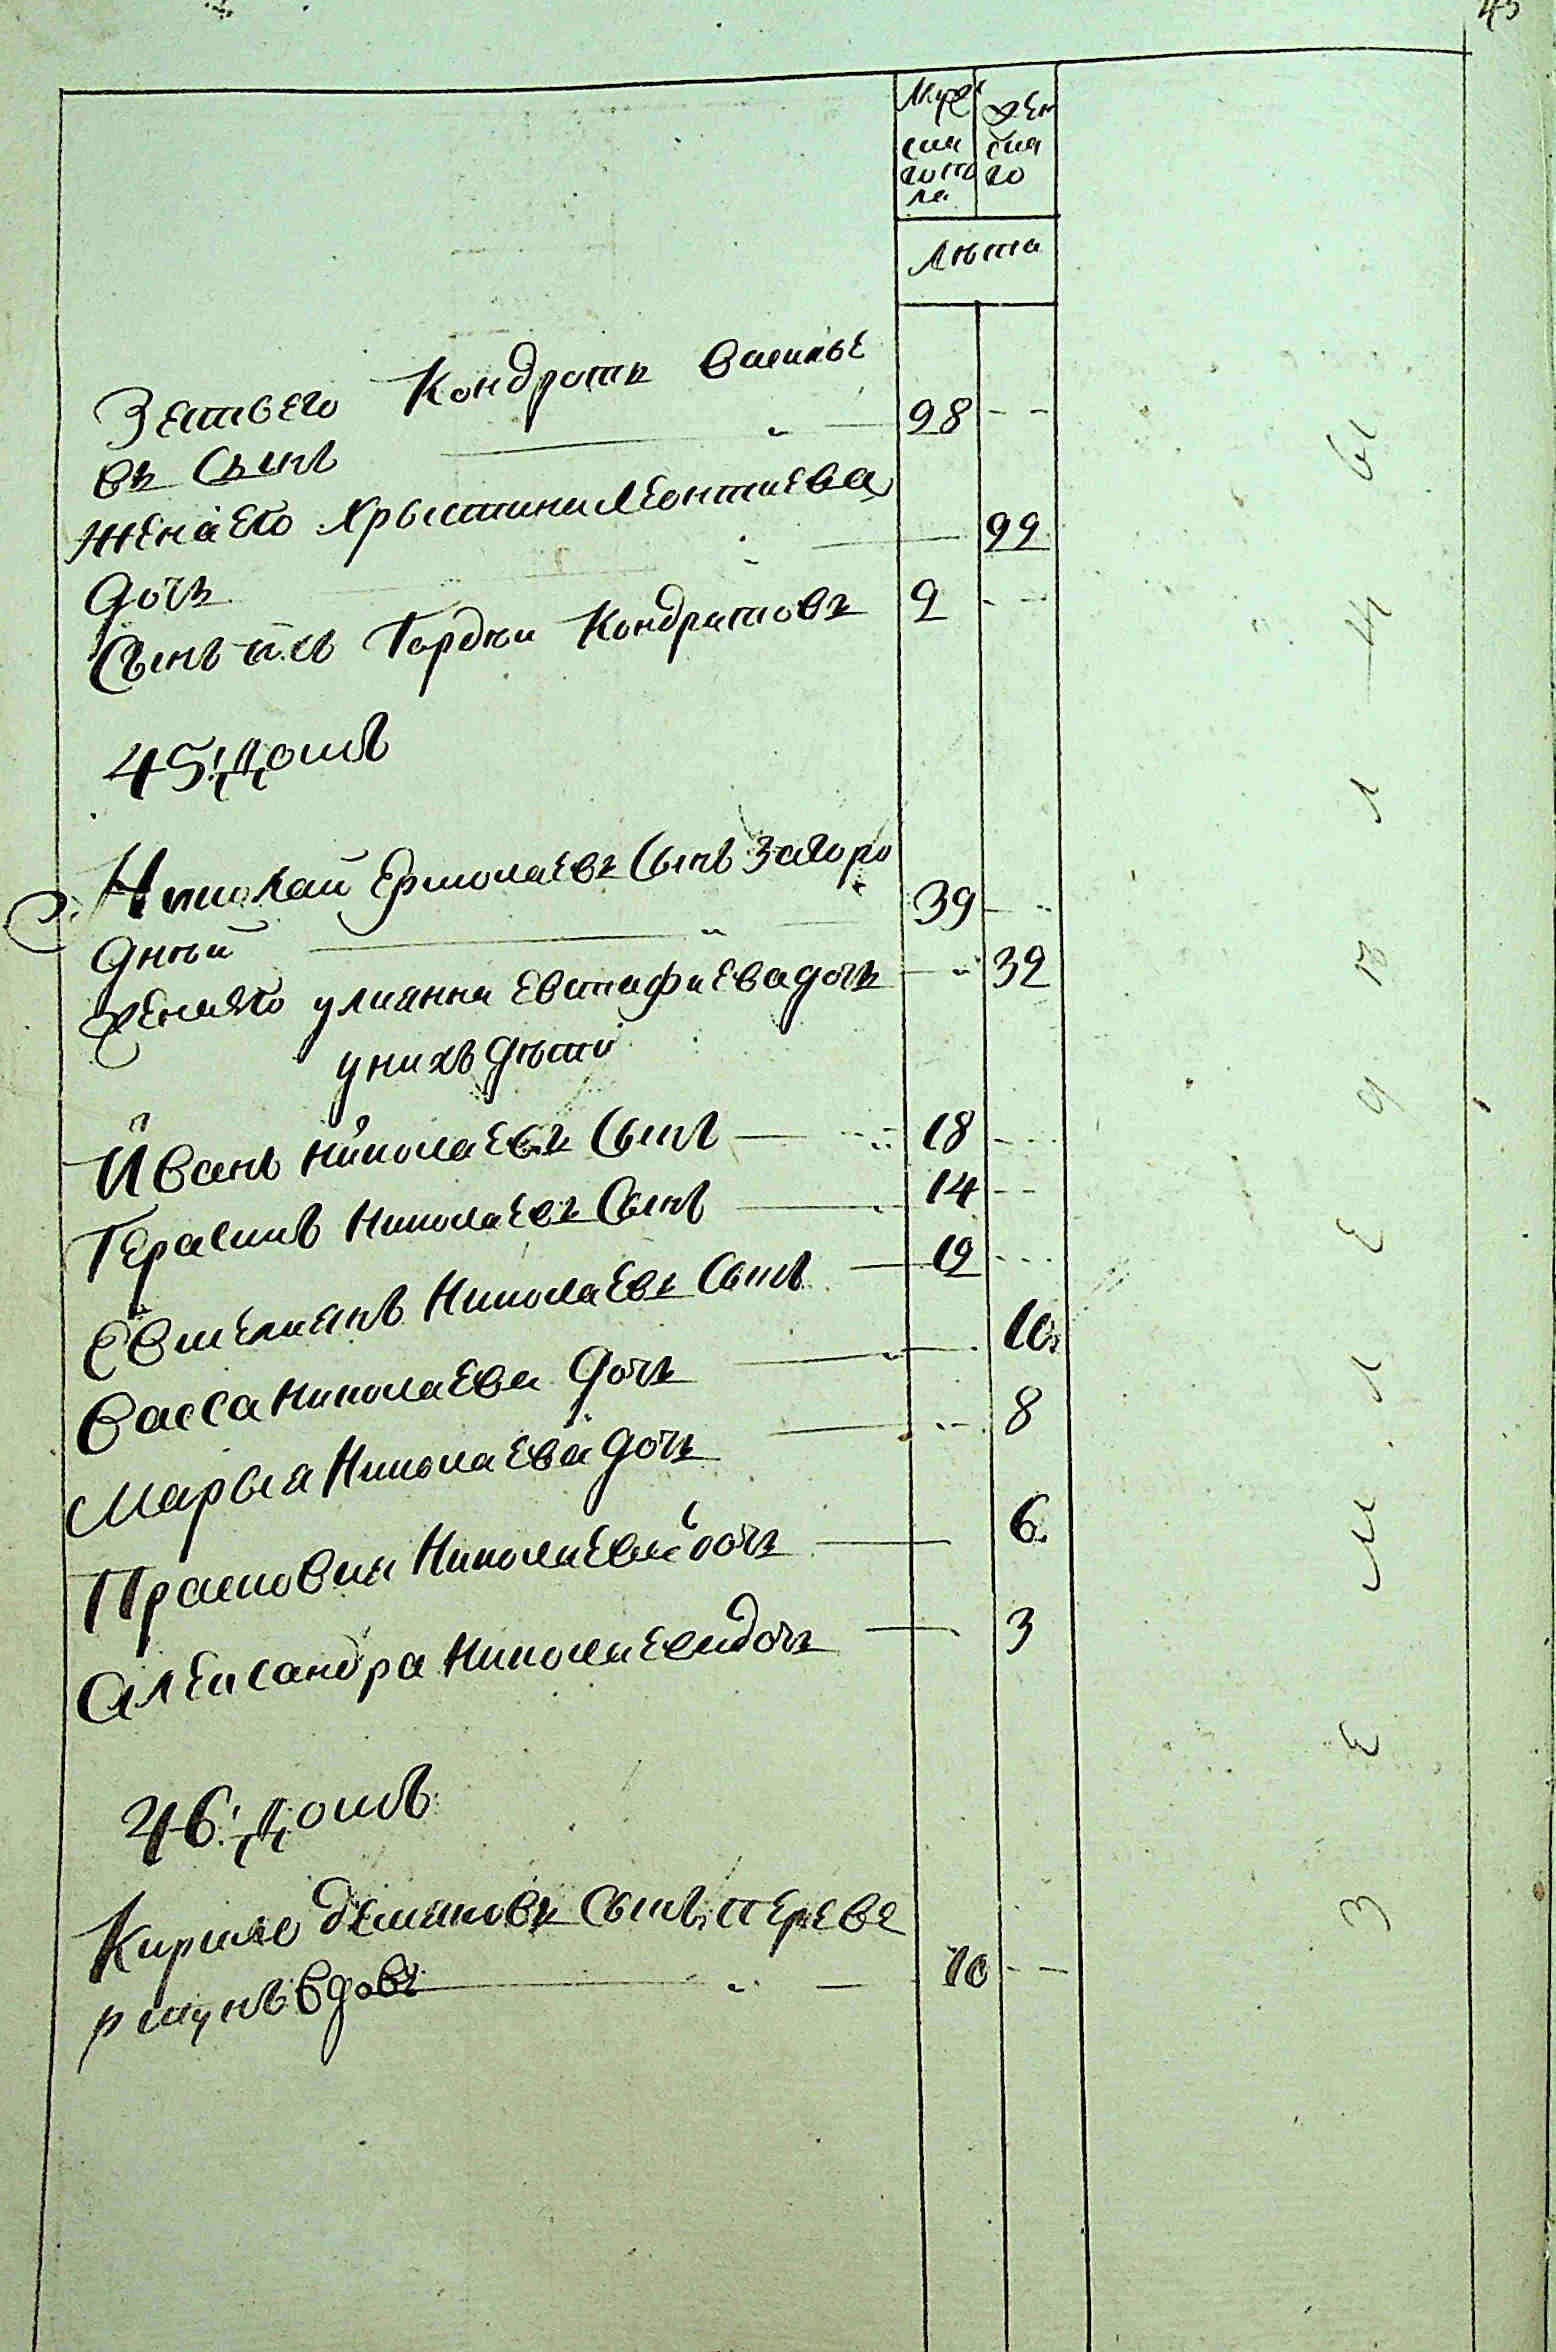 45
Муже жен
ска ска
гопо го
ла
Лѣта
Зетьего Кондратъ Василье
въ Сынъ 28 - -
жена его Христина Леонтиева
дочь 22
Сынъ ихъ Гордѣи Кондратовъ 2 - -
45: Домъ
Николай Ермолаевъ Сынъ Загоро
дный 39 - -
жена его улианна Евстафиева дочь 32
унихъ дѣти
Иванъ Николаевъ Сынъ 18 - -
Герасимъ Николаевъ Сынъ 14 - -
Евмелианъ Николаевъ Сынъ 12 - -
Васса Николаева дочь 10
Марья Николаева дочь 8
Прасковия Николаева дочь 6
Александра Николаева дочь 3
46: Домъ
Кирило Демяновъ Сынъ переве
рзмунъ вдовъ 70 - -